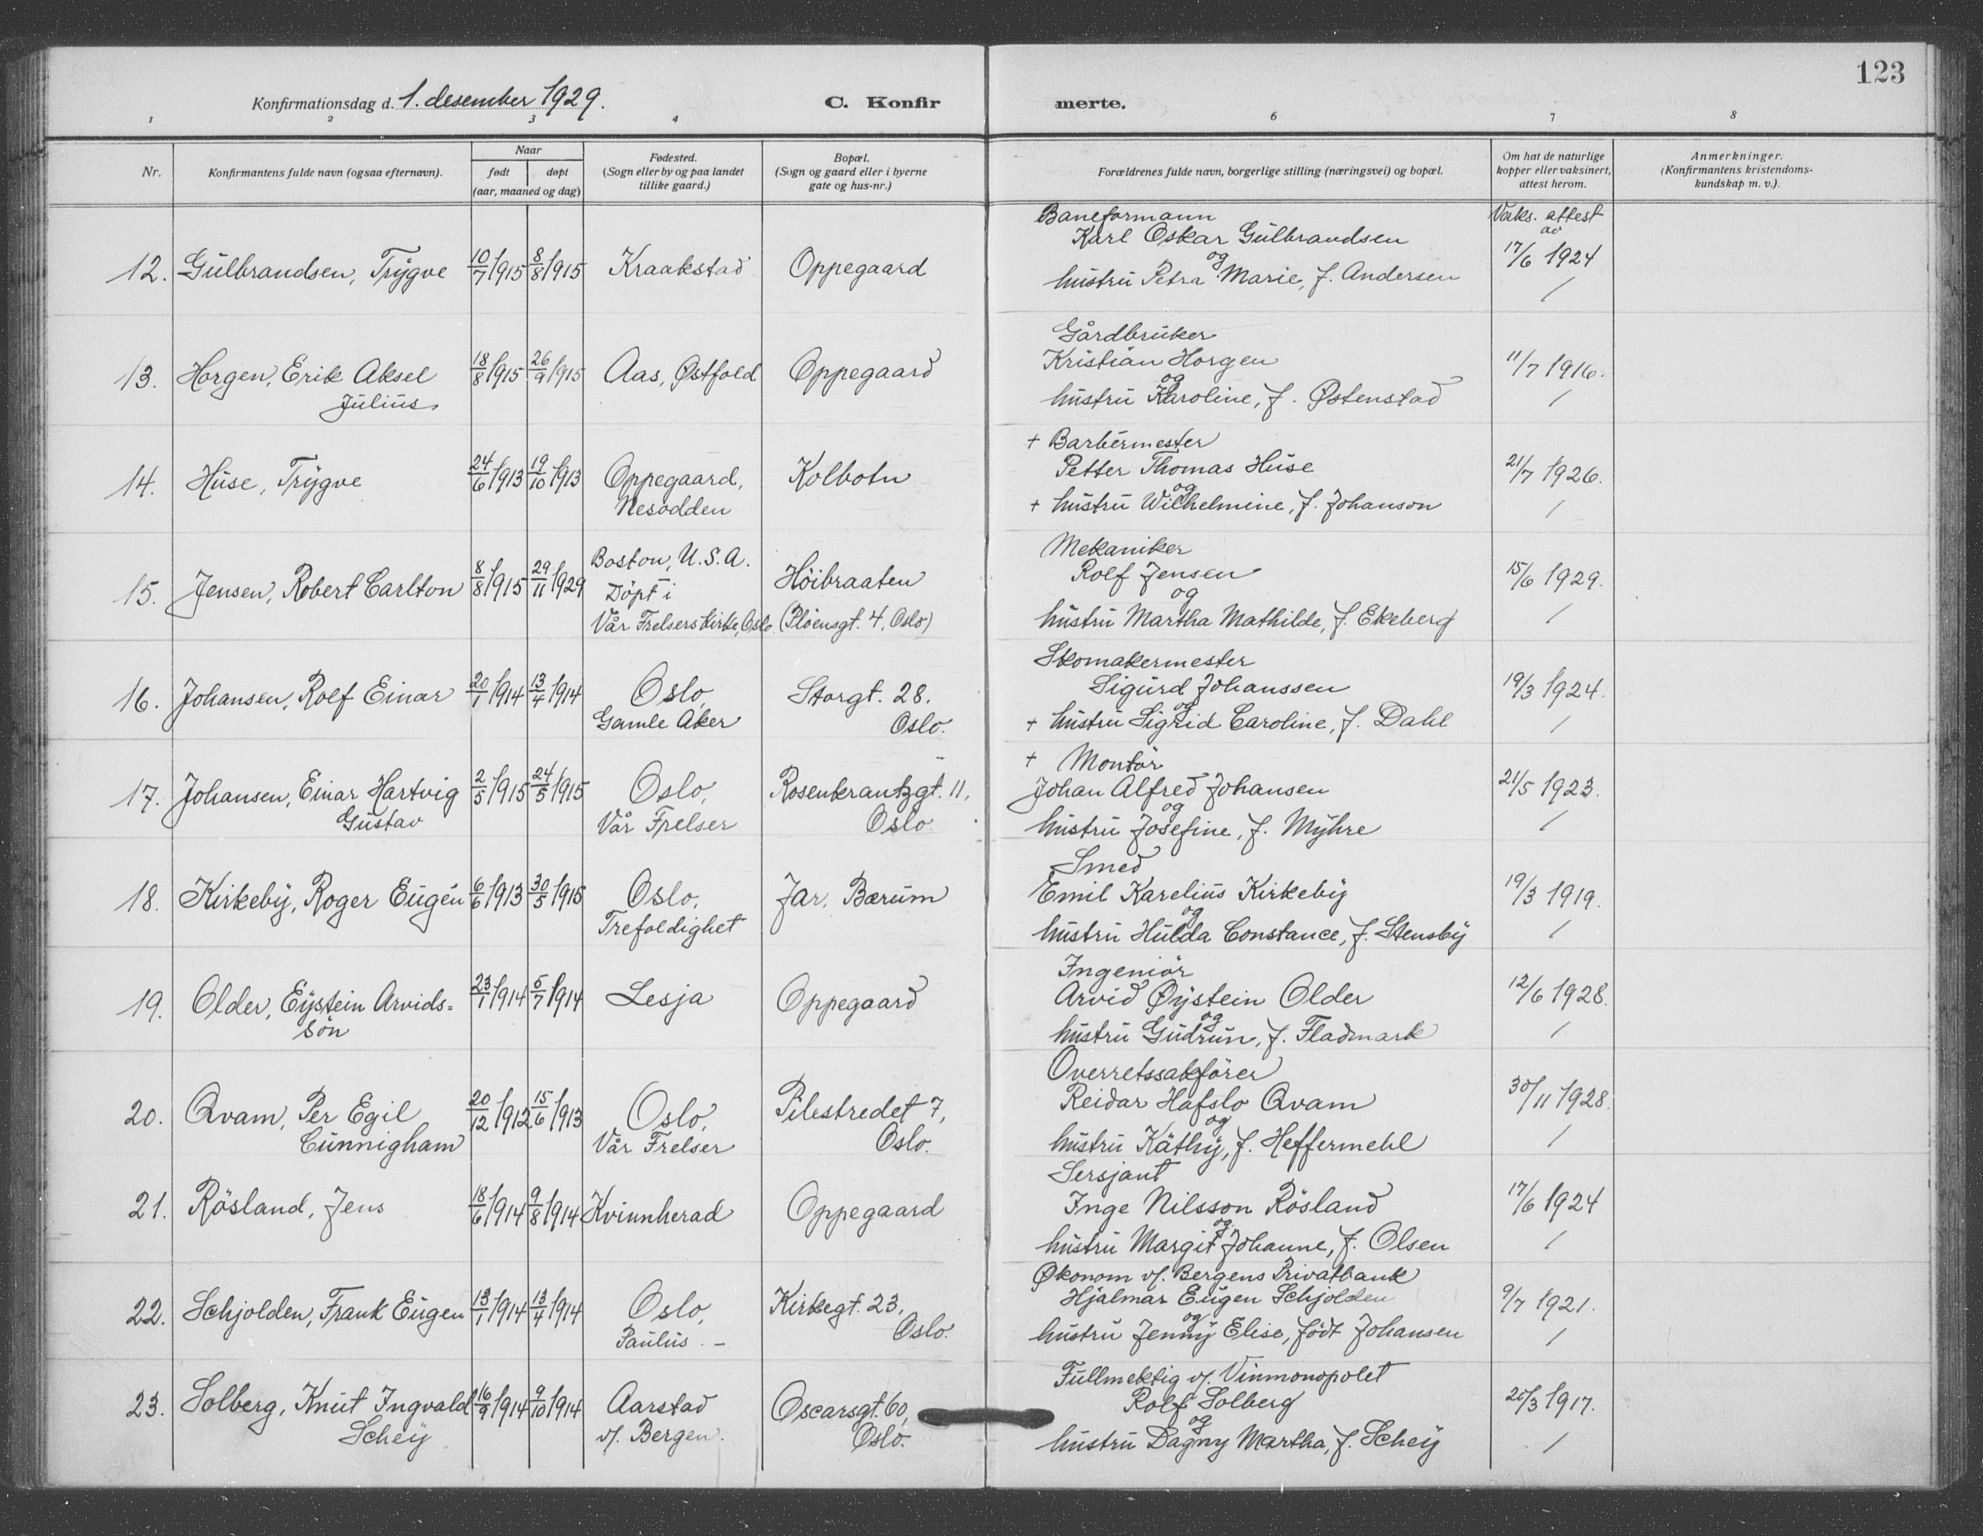 123
Konfirmationsdag d. 1. desember 1929.
C. Konfir merte.
1 2 3 4 6 7 8
Nr.
Konfirmantens fulde navn (ogsaa efternavn).
Naar
født døpt
(aar, maaned og dag)
Fødested.
(Sogn eller by og paa landet
tillike gaard.)
Bopæl.
(Sogn og gaard eller i byerne
gate og hus-nr.)
Forældrenes fulde navn, borgerlige stilling (næringsvei) og bopæl.
Om hat de naturlige
kopper eller vaksinert,
attest herom.
Anmerkninger.
(Konfirmantens kristendoms-
kundskap m. v.).
Baneformann Vaks. attest
Karl Oskar Gulbrandsen av
12. Gulbrandsen, Trygve 10/7 1915 8/8 1915 Kraakstad Oppegaard og 17/6 1924
hustru Petra Marie, f. Andersen /
Gårdbruker
Kristian Horgen
13. Horgen, Erik Aksel 18/8 1915 26/9 1915 Aas, Østfold Oppegaard og 11/7 1916.
Julius hustru Karoline, f. Østenstad /
+ Barbermester
Petter Thomas Huse
14. Huse, Trygve 24/6 1913 19/10 1913 Oppegaard, Kolbotn og 21/7 1926.
Nesodden + hustru Wilhelmine, f. Johanson /
Boston, U.S.A. Mekaniker
15. Jensen, Robert Carlton 8/8 1915 29/11 1929 Döpt i Höibraaten Rolf Jensen 15/6 1929.
og
Vår Frelsers kirke, Oslo (Plöensgt. 4, Oslo) hustru Martha Mathilde, f. Ekeberg /
Skomakermester
16. Johansen, Rolf Einar 20/1 1914 13/4 1914 Oslo, Storgt. 28. Sigurd Johanssen 19/3 1924.
og
Gamle Aker Oslo. + hustru Sigrid Caroline, f. Dahl /
+ Montör
17. Johansen, Einar Hartvig 2/5 1915 24/5 1915 Oslo, Rosenkrantzgt. 11, Johan Alfred Johansen 21/5 1923.
og
Gustav Vår Frelser Oslo. hustru Josefine, f. Myhre /
Smed
18. Kirkeby, Roger Eugén 6/6 1913 30/5 1915 Oslo, Jar, Bærum Emil Karelius Kirkeby 19/3 1919.
og
Trefoldighet hustru Hulda Constance, f. Stensby /
Ingeniör
19. Older, Eystein Arvids= 23/1 1914 5/7 1914 Lesja Oppegaard Arvid Øystein Older 12/6 1928.
og
sön hustru Gudrun, f. Fladmark /
Overretssakförer
20. Qvam, Per Egil 20/12 1912 15/6 1913 Oslo, Pilestredet 7, Reidar Hafslo Qvam 30/11 1928.
og
Cunnigham Vår Frelser Oslo. hustru Käthy, f. Heffermehl /
Sersjant
21. Rösland, Jens 18/6 1914 9/8 1914 Kvinnherad Oppegaard Inge Nilsson Rösland 17/6 1924
og
hustru Margit Johanne, f. Olsen /
Økonom v/. Bergens Privatbank
22. Schjolden, Frank Eugen 13/1 1914 13/4 1914 Oslo, Kirkegt. 23, Hjalmar Eugen Schjolden 9/7 1921.
og
Paulus. – Oslo. hustru Jenny Elise, født Johansen /
Fullmektig v/. Vinmonopolet
23. Solberg, Knut Ingvald 16/9 1914 9/10 1914 Aarstad Oscarsgt. 60, Rolf Solberg 20/3 1917.
og
Schey v/. Bergen. Oslo. hustru Dagny Martha, f. Schey /